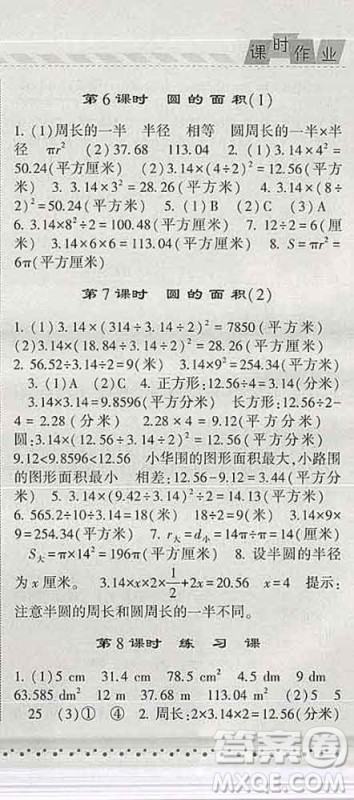 课时作业
第6课时 圆的面积(1)
1. (1)周长的一半 半径 相等 圆周长的一半×半
径 πr² (2)37.68 113.04 2. (1)3.14×4²=
50.24(平方厘米) (2)3.14×(4÷2)²=12.56(平方
米) 3. 3.14×3²=28.26(平方米) 4. 3.14×(8÷
2)²=50.24(平方米) 5. (1)B (2)C (3)A
6. 3.14×8²÷2=100.48(平方米) 7. 12÷2=6(厘
米) 3.14×6²=113.04(平方厘米) 8. S=πr²=
6π(平方厘米)
第7课时 圆的面积(2)
1. (1)3.14×(314÷3.14÷2)²=7850(平方米)
(2)3.14×(18.84÷3.14÷2)²=28.26(平方厘米)
2. 56.52÷3.14÷2=9(米) 3.14×9²=254.34(平方
米) 3. (1)A (2)C 4. 正方形:12.56÷4=3.14
(分米) 3.14×3.14=9.8596(平方分米) 长方形:12.56÷2-
4=2.28(分米) 2.28×4=9.12(平方分米)
圆:3.14×(12.56÷3.14÷2)²=12.56(平方分米)
9.12<9.8596<12.56 小华围的图形面积最大,小路围
的图形面积最小 相差:12.56-9.12=3.44(平方分
米) 5. 3.14×(9.42÷3.14÷2)²=7.065(平方米)
6. 565.2÷10÷3.14=18(米) 18÷2=9(米) 3.14×9×
9=254.34(平方米) 7. r大=d小=14÷1=14(米)
S大=π×14²=196π(平方米) 8. 设半圆的半径
为x厘米。 3.14×x×2×1/2+2x=20.56 x=4 提示:
注意半圆的周长和圆周长的一半不同。
第8课时 练习课
1. (1)5 cm 31.4 cm 78.5 cm² 4.5 dm 9 dm
63.585 dm² 12 m 37.68 m 113.04 m² (2)5 5
25 (3)① ④ 2. 周长:2×3.14×2=12.56(分米)
答案圈
MXQE.COM